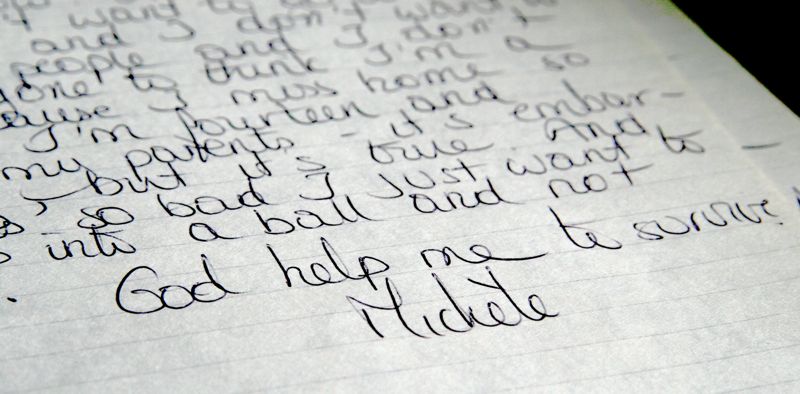 I want to
and I don't want
people and I don't
to think I'm a
I miss home so
I'm fourteen and
my parents - it's embar-
but it's true. And
so bad I just want to
into a ball and not
God help me to survive!
Michele